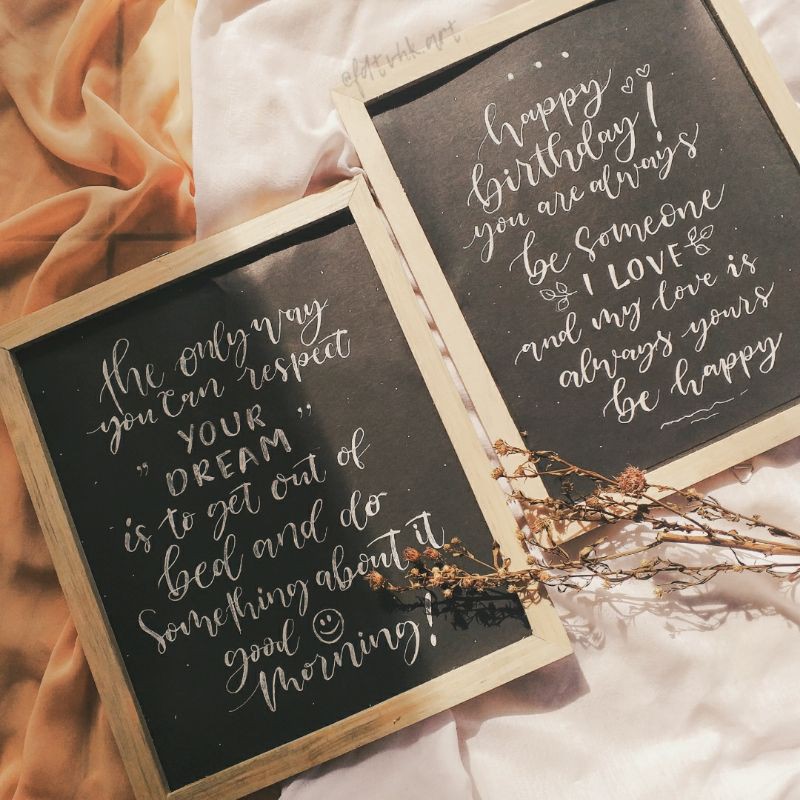 the only way
you can respect
" YOUR "
DREAM
is to get out of
bed and do
something about it
good
morning!
happy
birthday!
you are always
be someone
I LOVE
and my love is
always yours
be happy